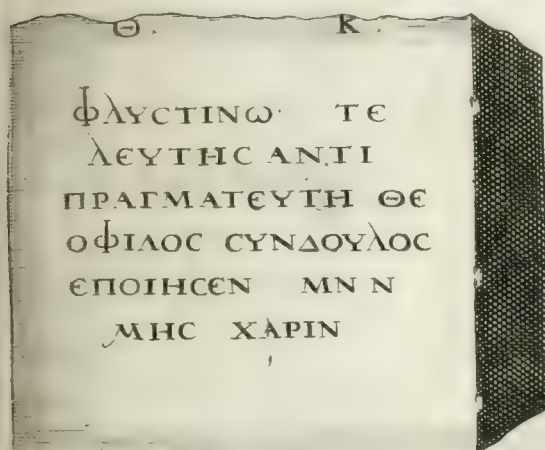 Θ. Κ.
ΦΛΥϹΤΙΝΩ· ΤΕ
ΛΕΥΤΗϹ ΑΝ.ΤΙ
ΠΡΑΓΜΑΤΕΥΤΗ ΘΕ
ΟΦΙΛΟϹ ϹΥΝΔΟΥΛΟϹ
ΕΠΟΙΗϹΕΝ ΜΝ Ν
ΜΗϹ ΧΑΡΙΝ